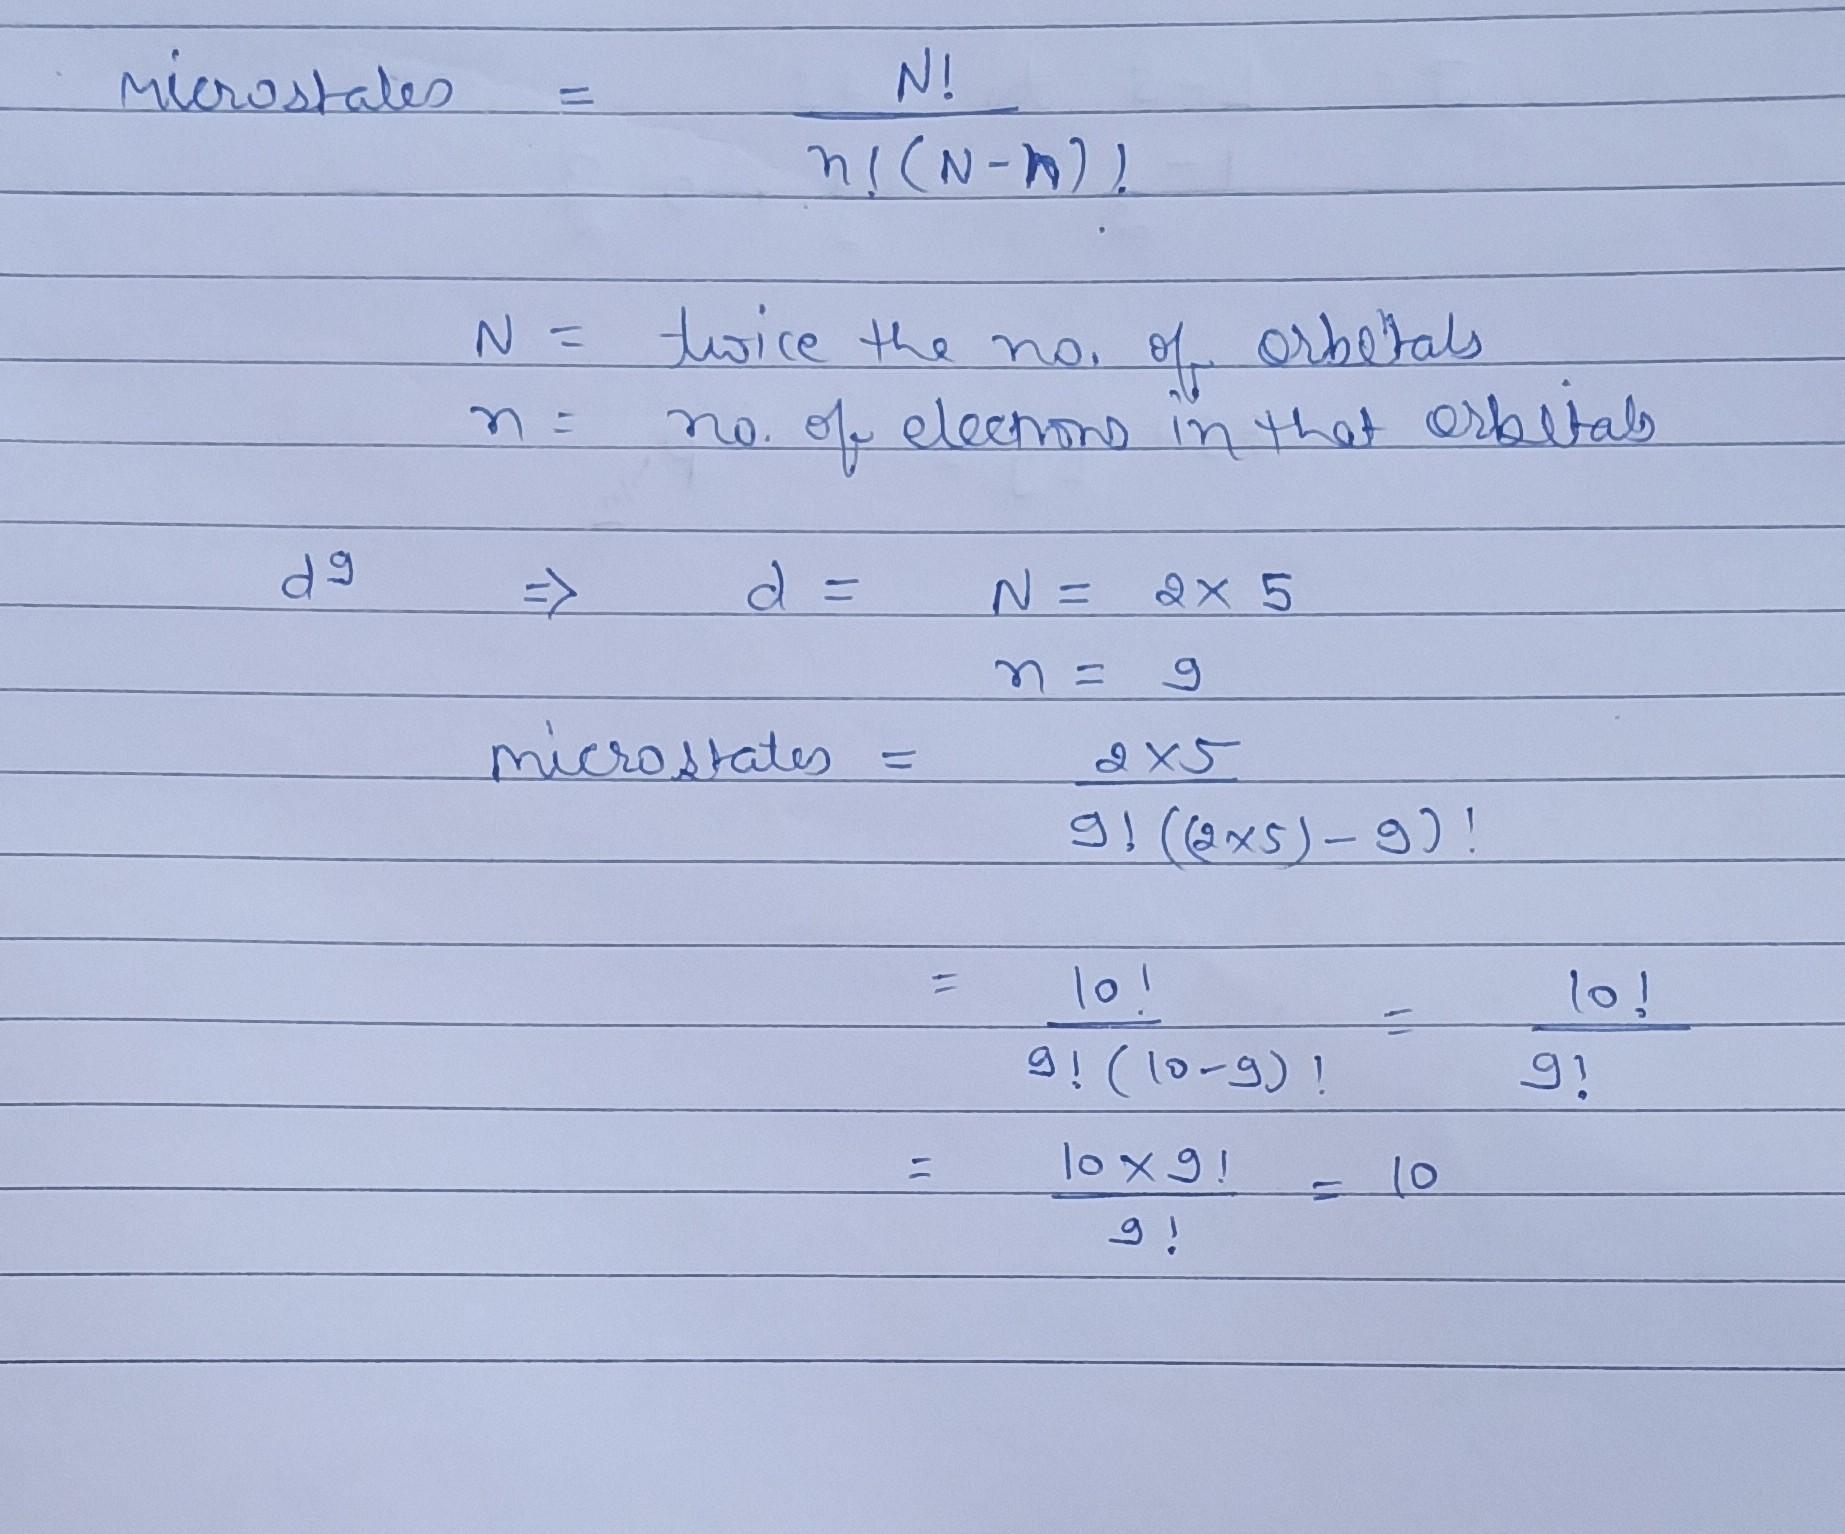 microstates = N!
n!(N-n)!
N = twice the no. of orbitals
n = no. of electrons in that orbitals
d9 => d = N = 2×5
n = 9
microstates = 2×5
9!((2×5)-9)!
= 10! = 10!
9!(10-9)! 9!
= 10×9! = 10
9!